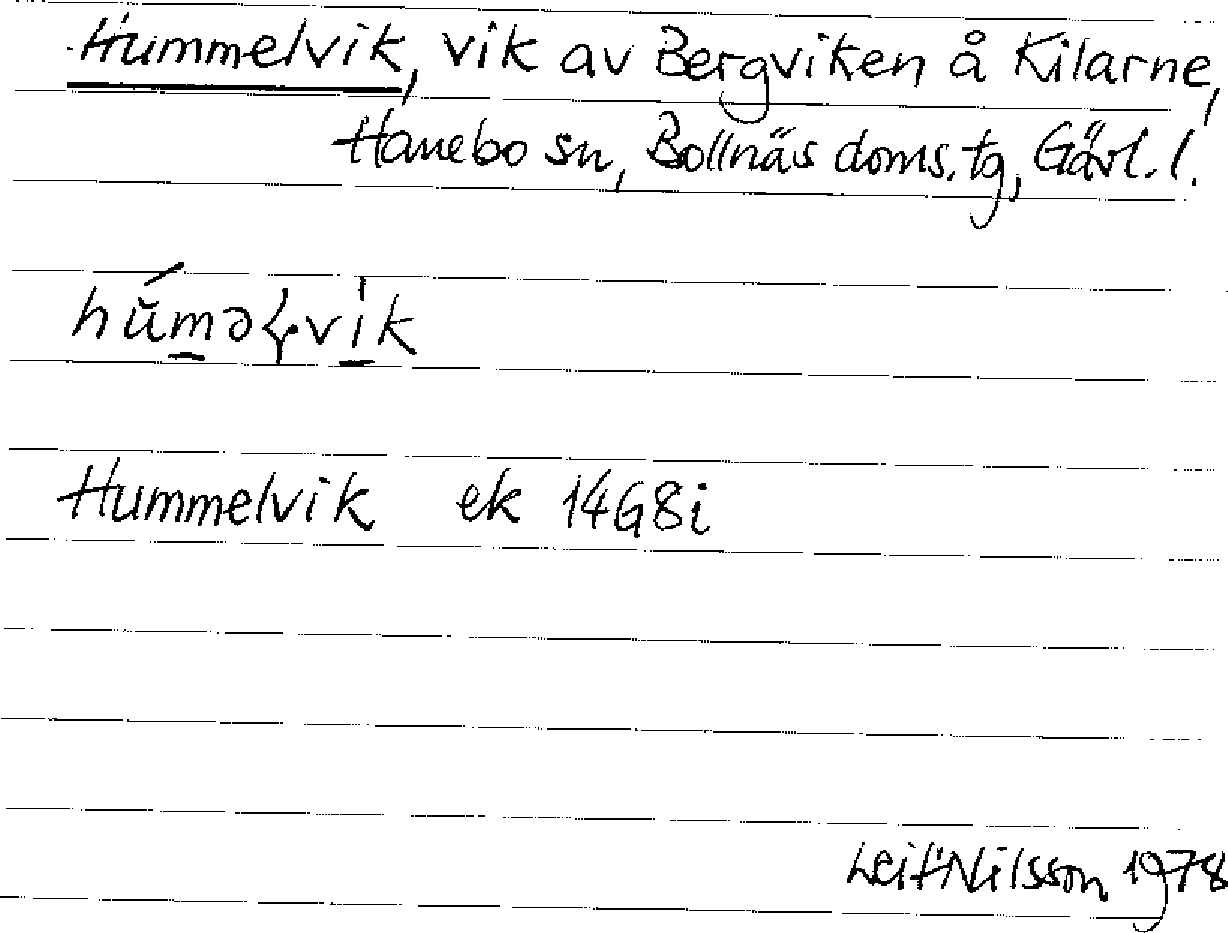 Hummelvik, vik av Bergviken å Kilarne,
Hanebo sn, Bollnäs doms.tg, Gävl. l.
Hummelvik ek 14G8i
Leif Nilsson 1978